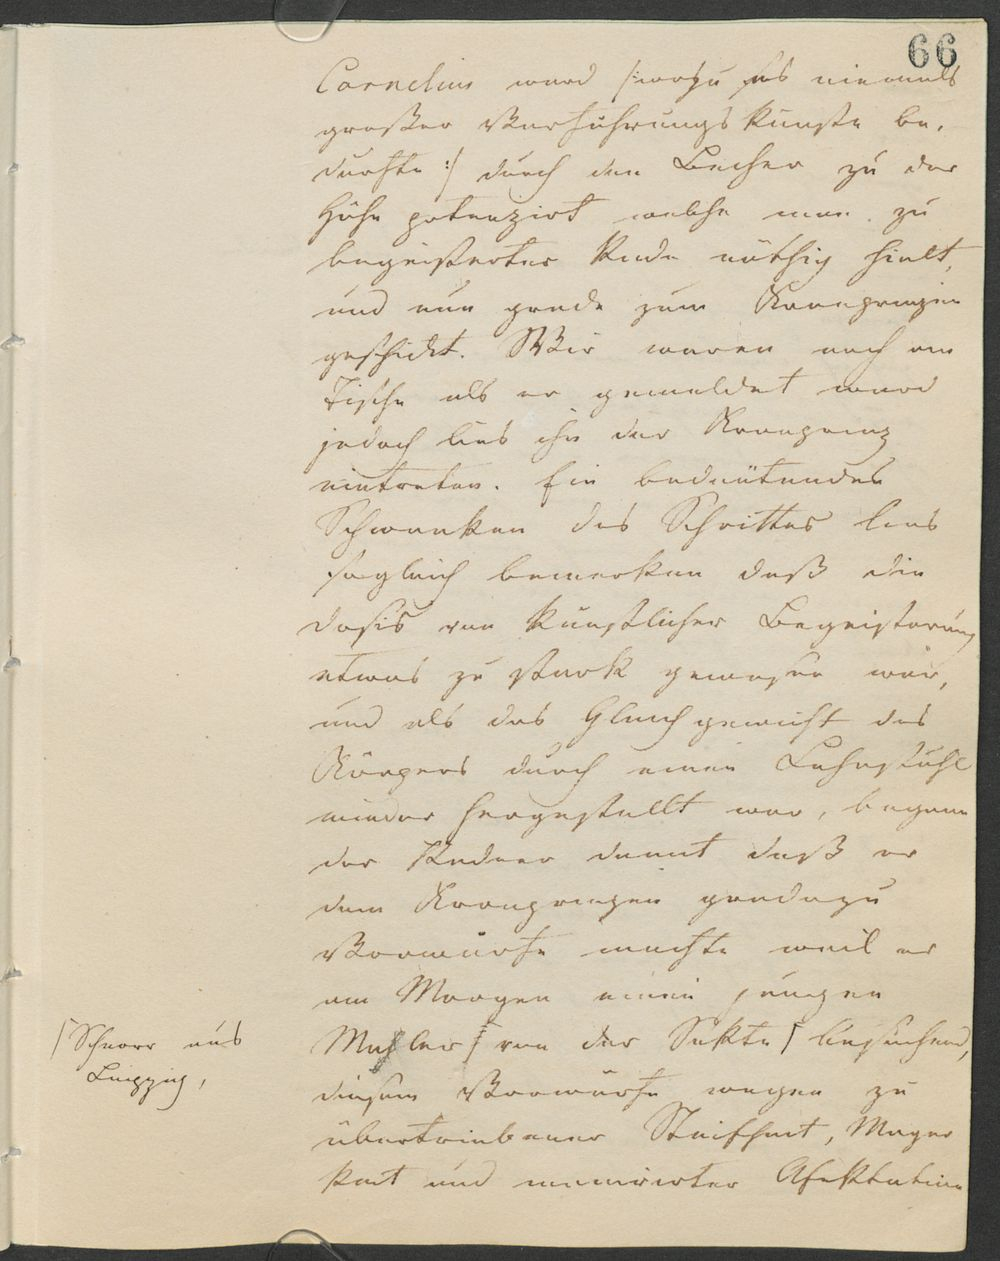 66
Cornelius ward /:wozu es niemals
großer Verführungskünste be-
durfte:/ durch den Becher zu der
Höhe potenzirt welche man zu
begeisterter Rede nöthig hielt,
und nun grade zum Kronprinzen
geschickt. Wir waren noch am
Tische als er gemeldet ward
jedoch lies ihn der Kronprinz
eintreten. Ein bedeutendes
Schwanken des Schrittes lies
sogleich bemerken daß die
Dosis von künstlicher Begeisterung
etwas zu stark gewesen war,
und als das Gleichgewicht des
Körpers durch einen Lehnstuhl
wieder hergestellt war, begann
der Redner damit daß er
dem Kronprinzen geradezu
Vorwürfe machte weil er
am Morgen einen jungen
Mahler von der Sekte besuchend,
diesem Vorwürfe wegen zu
übertriebener Steifheit, Mager
keit und manirirter Afektation
Schnorr aus
Leipzig,